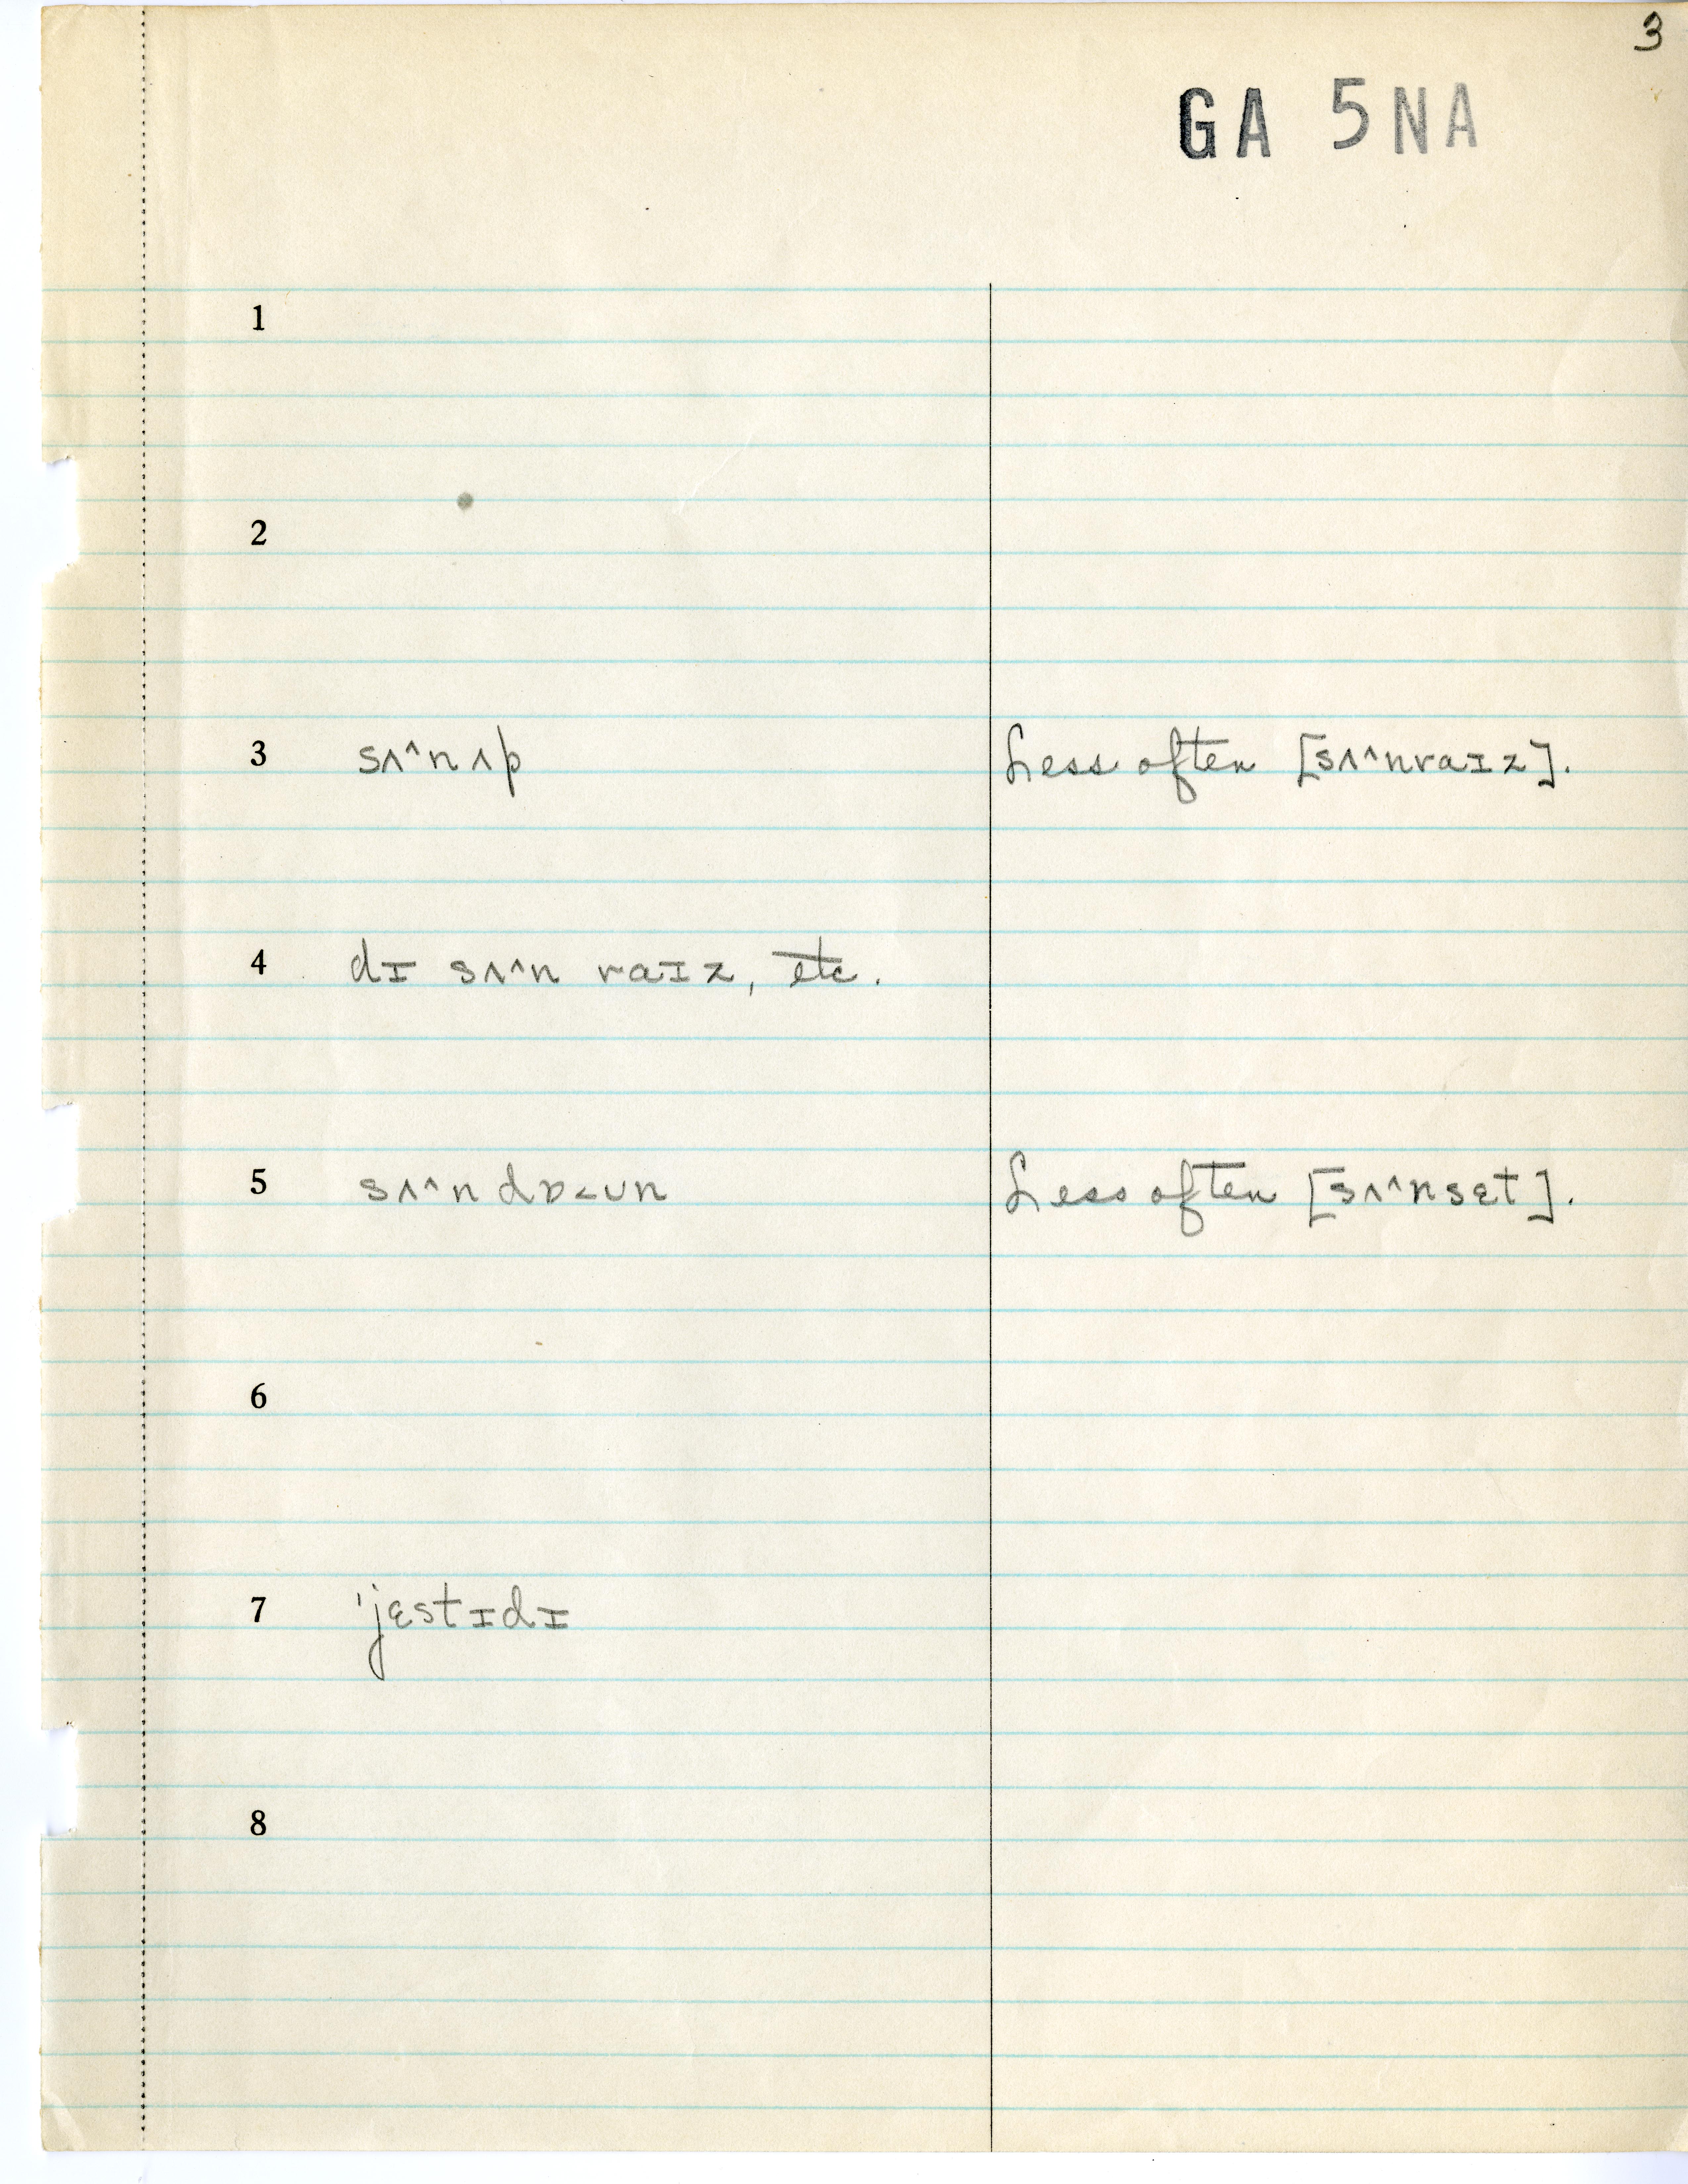 3
GA 5NA
1
2
3 sʌ^nʌp Less often [sʌ^nraɪz].
4 dɪ sʌ^n raɪz, etc.
5 sʌ^n dɒ<ʊn Less often [sʌ^nsɛt].
6
7 ˈjɛstɪdɪ
8